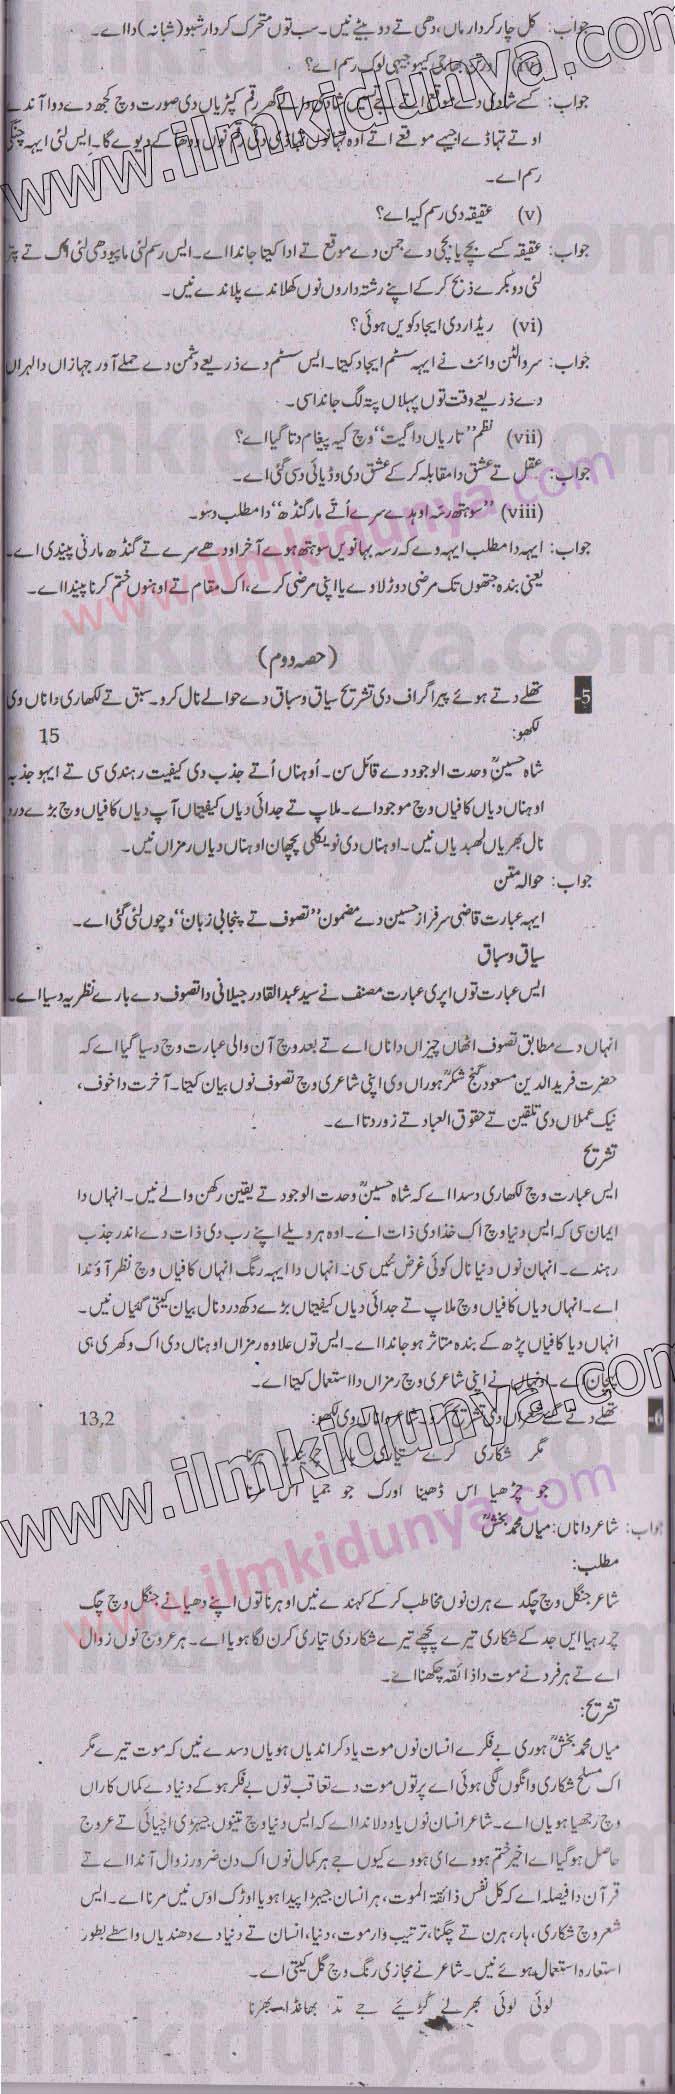 جواب: کل چار کردار ماں، دھی تے دو بیٹے نیں۔ سب توں متحرک کردار شبو (شبانہ) دا اے۔
(iv) ورتن بھاجی کیہو جیہی لوک رسم اے؟
جواب: کسے شادی دے موقع اتے تسیں شادی والے گھر رقم کپڑیاں دی صورت وچ کجھ دے دوا آندے
او تے تہاڈے اجیہے موقعے اتے اوہ تہانوں تہاڈی دتی رقم نوں ودھا کے دیوے گا۔ ایس لئی ایہہ چنگی
رسم اے۔
(v) عقیقہ دی رسم کیہ اے؟
جواب: عقیقہ کسے بچے یا بچی دے جمن دے موقع تے ادا کیتا جاندا اے۔ ایس رسم لئی ماپیو دھی لئی اک تے پتر
لئی دو بکرے ذبح کر کے اپنے رشتہ داروں نوں کھلاندے پلاندے نیں۔
(vi) ریڈار دی ایجاد کویں ہوئی؟
جواب: سر والٹن وائٹ نے ایہہ سسٹم ایجاد کیتا۔ ایس سسٹم دے ذریعے دشمن دے حملے آور جہازاں دا لہراں
دے ذریعے وقت توں پہلاں پتہ لگ جاندا سی۔
(vii) نظم "تاریاں دا گیت" وچ کیہ پیغام دتا گیا اے؟
جواب: عقل تے عشق دا مقابلہ کر کے عشق دی وڈیائی دسی گئی اے۔
(viii) "سو ہتھ رسہ اوہدے سرے اُتے مار گنڈھ" دا مطلب دسو۔
جواب: ایہہ دا مطلب ایہہ وے کہ رسہ بہانویں سو ہتھ ہووے آخر اودھے سرے تے گنڈھ مارنی پیندی اے۔
یعنی بندہ جتھوں تک مرضی دوڑ لاوے یا اپنی مرضی کرے، اک مقام تے اوہنوں ختم کرنا پیندا اے۔
(حصہ دوم)
5- تھلے دتے ہوئے پیراگراف دی تشریح سیاق و سباق دے حوالے نال کرو۔ سبق تے لکھاری دا ناں وی
لکھو: 15
شاہ حسینؒ وحدت الوجود دے قائل سن۔ اوہناں اُتے جذب دی کیفیت رہندی سی تے ایہو جذبہ
اوہناں دیاں کافیاں وچ موجود اے۔ ملاپ تے جدائی دیاں کیفیتاں آپ دیاں کافیاں وچ بڑے درد
نال بھریاں لبھدیاں نیں۔ اوہناں دی نویکلی پچھان اوہناں دیاں رمزاں نیں۔
جواب: حوالہ متن
ایہہ عبارت قاضی سرفراز حسین دے مضمون "تصوف تے پنجابی زبان" وچوں لئی گئی اے۔
سیاق و سباق
ایس عبارت توں اپری عبارت مصنف نے سید عبدالقادر جیلانی دا تصوف دے بارے نظریہ دسیا اے۔
انہاں دے مطابق تصوف اٹھاں چیزاں دا ناں اے تے بعد وچ آن والی عبارت وچ دسیا گیا اے کہ
حضرت فرید الدین مسعود گنج شکرؒ ہوراں وی اپنی شاعری وچ تصوف نوں بیان کیتا۔ آخرت دا خوف،
نیک عملاں دی تلقین تے حقوق العباد تے زور دتا اے۔
تشریح
ایس عبارت وچ لکھاری دسدا اے کہ شاہ حسینؒ وحدت الوجود تے یقین رکھن والے نیں۔ انہاں دا
ایمان سی کہ ایس دنیا وچ اک خدا دی ذات اے۔ اوہ ہر ویلے اپنے رب دی ذات دے اندر جذب
رہندے۔ انہان نوں دنیا نال کوئی غرض نئیں سی۔ انہاں دا ایہہ رنگ انہاں کافیاں وچ نظر آؤندا
اے۔ انہاں دیاں کافیاں وچ ملاپ تے جدائی دیاں کیفیتاں بڑے دکھ درد نال بیان کیتی گئیاں نیں۔
انہاں دیا کافیاں پڑھ کے بندہ متاثر ہو جاندا اے۔ ایس توں علاوہ رمزاں اوہناں دی اک وکھری ہی
پچان اے۔ اوہناں نے اپنی شاعری وچ رمزاں دا استعمال کیتا اے۔
6- تھلے دتے گئے شعراں دی تشریح کرو۔ شاعر دا ناں وی لکھو: 13,2
مگر شکاری کرے تیاری بار چریندیا ہرنا
جو چڑھیا اس ڈھینا اورک جو جمیا اس مرنا
جواب: شاعر دا ناں: میاں محمد بخشؒ
مطلب:
شاعر جنگل وچ چگدے ہرن نوں مخاطب کر کے کہندے نیں او ہرنا توں اپنے دھیانے جنگل وچ چگ
چر رہیا ایں جد کے شکاری تیرے پچھے تیرے شکار دی تیاری کرن لگا ہویا اے۔ ہر عروج نوں زوال
اے تے ہر فرد نے موت دا ذائقہ چکھنا اے۔
تشریح:
میاں محمد بخشؒ ہوری بے فکرے انسان نوں موت یاد کراندیاں ہویاں دسدے نیں کہ موت تیرے مگر
اک مسلح شکاری وانگوں لگی ہوئی اے پر توں موت دے تعاقب توں بے فکر ہو کے دنیا دے کماں کاراں
وچ رجھیا ہویاں اے۔ شاعر انسان نوں یاد دلاندا اے کہ ایس دنیا وچ تینوں جیہڑی اچیائی تے عروج
حاصل ہو گیا اے اخیر ختم ہووے ای ہووے کیوں جے ہر کمال نوں اک دن ضرور زوال آندا اے تے
قرآن دا فیصلہ اے کہ کل نفس ذائقۃ الموت، ہر انسان جیہڑا پیدا ہویا اوڑک اوس نیں مرنا اے۔ ایس
شعر وچ شکاری، ہار، ہرن تے چگنا، ترتیب وار موت، دنیا، انسان تے دنیا دے دھندیاں واسطے بطور
استعارہ استعمال ہوئے نیں۔ شاعر نے مجازی رنگ وچ گل کیتی اے۔
لوئی لوئی بھر لے کڑیئے جے تد بھانڈا بھرنا